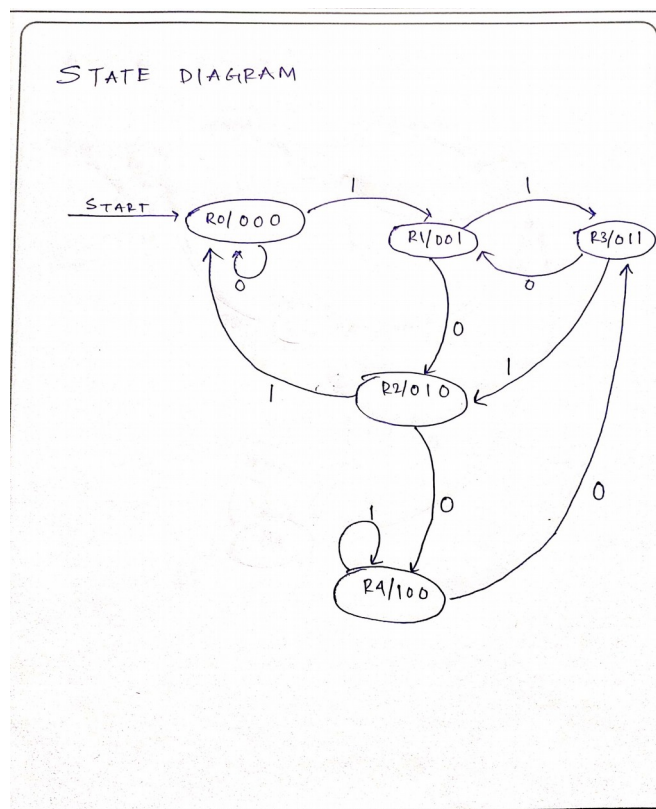 STATE DIAGRAM
1
1
START
R0/000
R1/001
R3/011
0
0
0
1
R2/010
1
0
0
1
R4/100